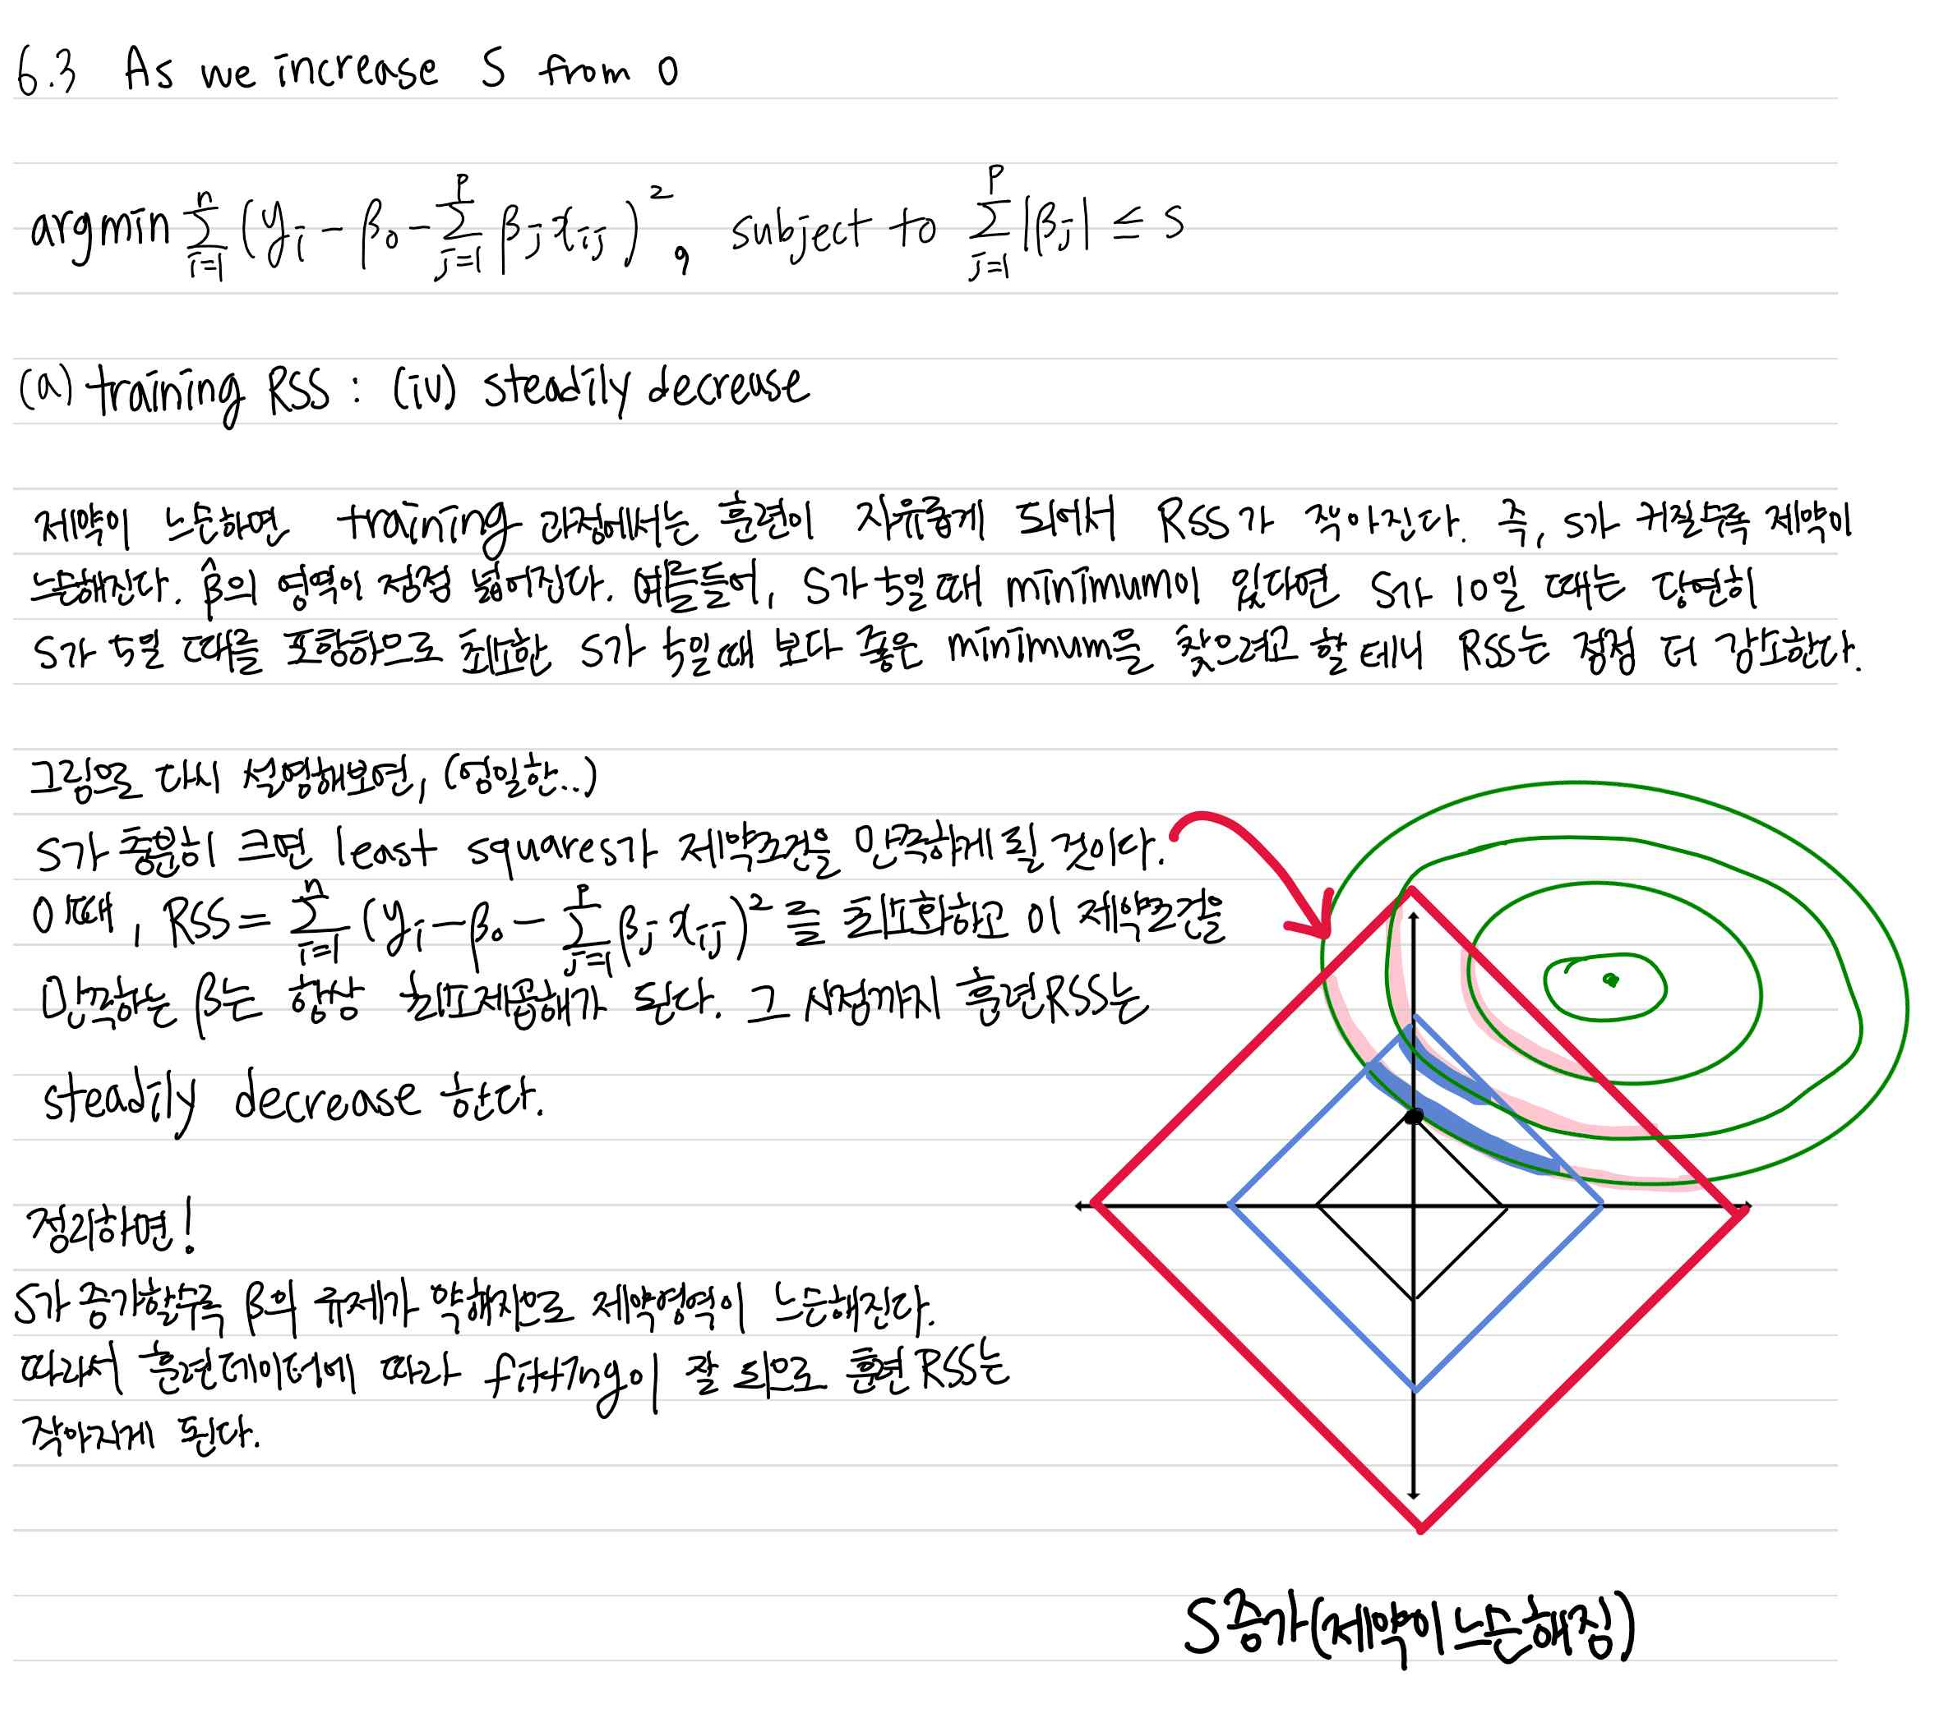 6.3 As we increase s from 0
argmin \sum_{i=1}^{n} (y_i - β_0 - \sum_{j=1}^{p} β_j x_{ij})^2, subject to \sum_{j=1}^{p} |β_j| ≤ s
(a) training RSS : (iv) steadily decrease
제약이 느슨하면 training 과정에서는 훈련이 자유롭게 되어서 RSS가 작아진다. 즉, s가 커질수록 제약이
느슨해진다. \hat{β}의 영역이 점점 넓어진다. 예를들어, s가 5일 때 minimum이 있다면 s가 10일 때는 당연히
s가 5일 때를 포함하므로 최소한 s가 5일때 보다 좋은 minimum을 찾으려고 할 테니 RSS는 점점 더 감소한다.
그림으로 다시 설명해보면, (엄밀한..)
s가 충분히 크면 least squares가 제약조건을 만족하게 될 것이다.
이때, RSS = \sum_{i=1}^{n} (y_i - β_0 - \sum_{j=1}^{p} β_j x_{ij})^2 를 최소화하고 이 제약조건을
만족하는 β는 항상 최소제곱해가 된다. 그 시점까지 훈련RSS는
steadily decrease 한다.
정리하면!
s가 증가할수록 β의 규제가 약해지므로 제약영역이 느슨해진다.
따라서 훈련데이터에 따라 fitting이 잘 되므로 훈련 RSS는
작아지게 된다.
S증가(제약이 느슨해짐)